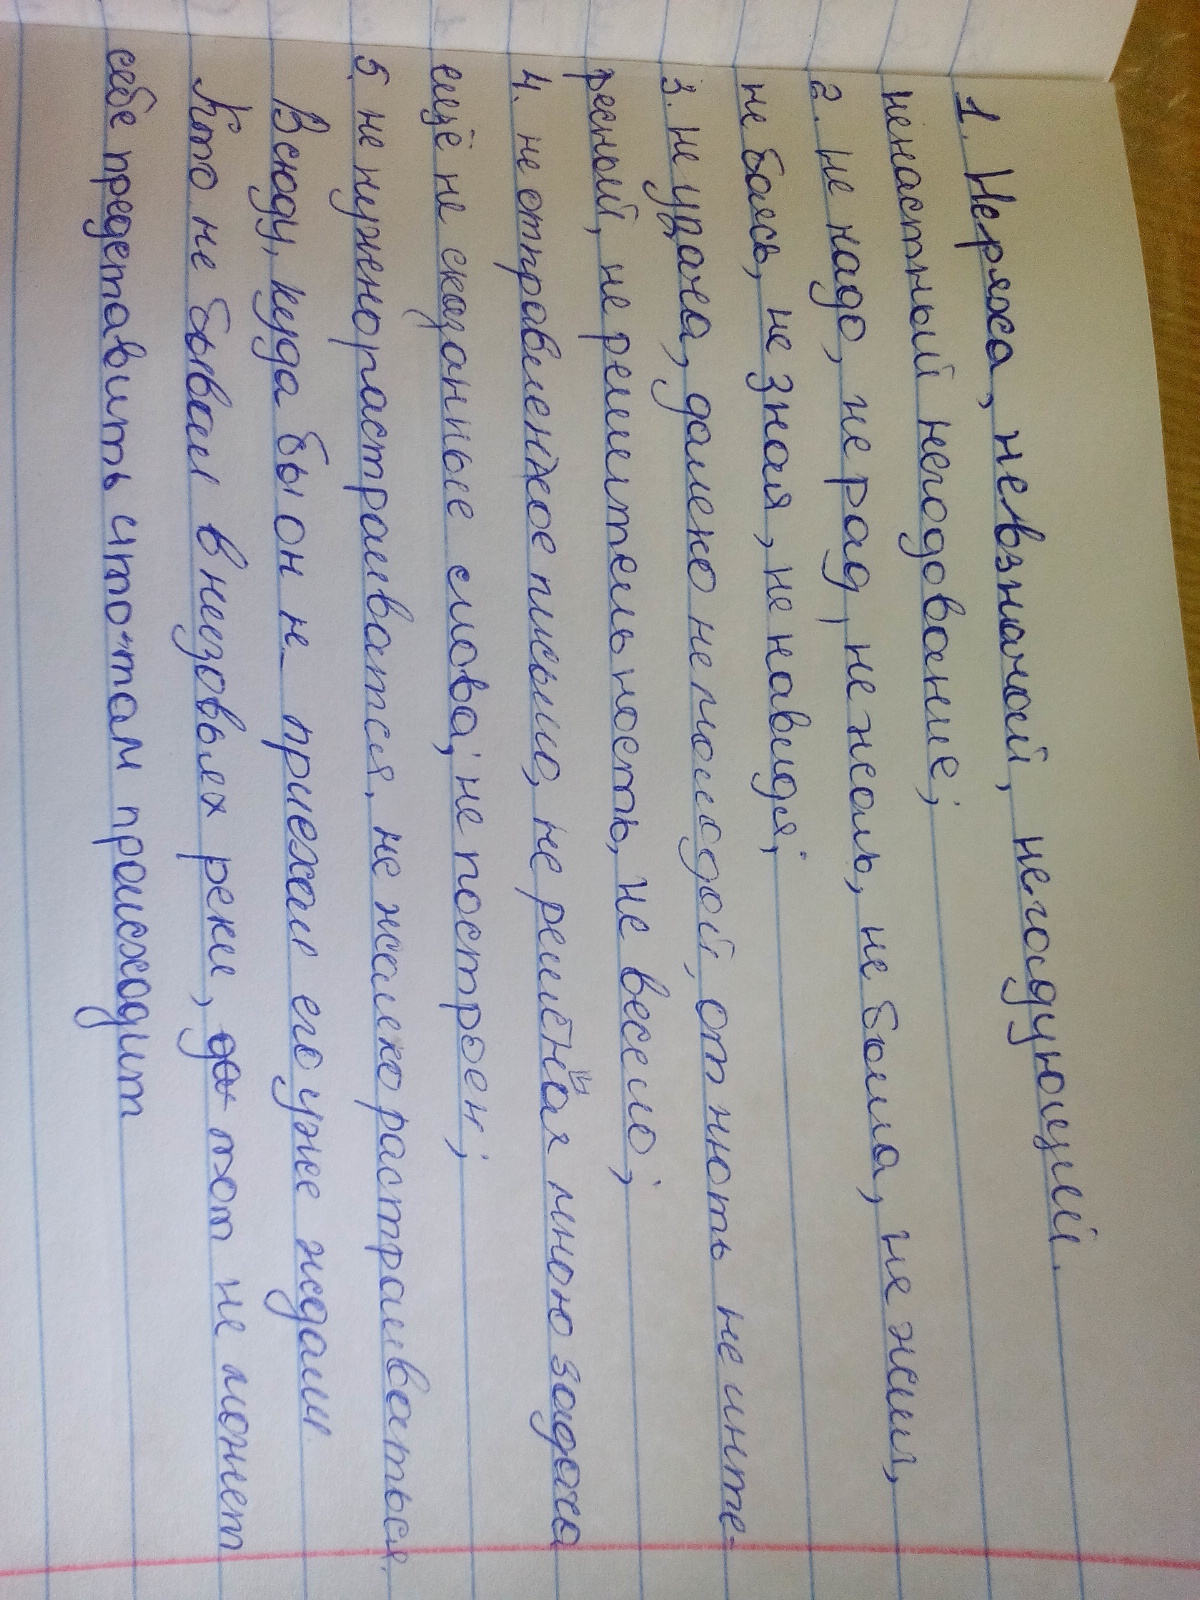 1. Неряха, невзначай, негодующий.
ненастный негодование;
2. не надо, не рад, не жаль, не была, не жил,
не боясь, не зная, не навидя;
3. не удача, далеко не молодой, от нють не инте-
ресный, не решительность, не весело;
4. не отправленное письмо, не решённая мною задача
ещё не сказанные слова, не построен;
5. не нужно растраиватся, не жалко растраиваться.
Всюду, куда бы он н_ приехал его уже ждали.
Кто не бывал в низовьях реки, тот не может
себе представить что-там происходит